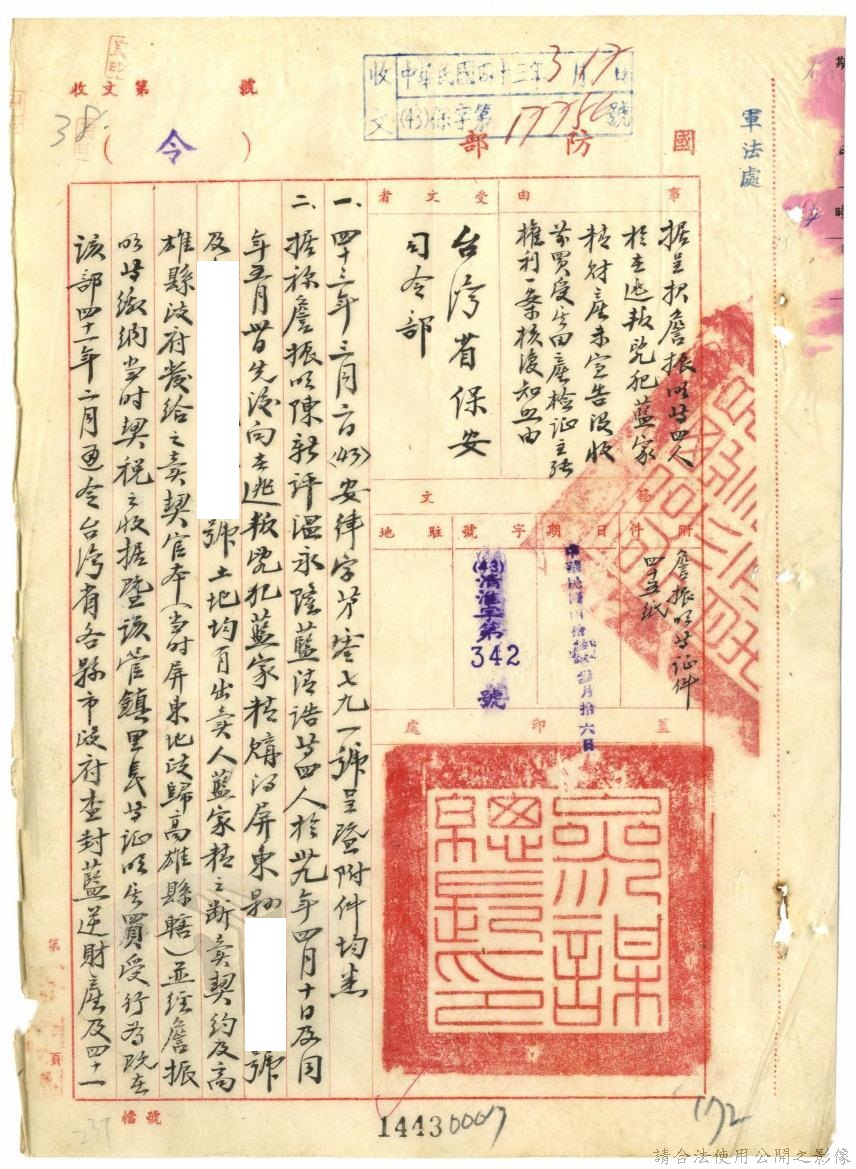 收文第 號
收文
中華民國四十三年3月17日
(43)保字第17756號
38
國防部
(令)
軍法處
事由
受文者
據呈报詹振明等四人
於在逃叛亂犯藍家
精財產未宣告沒收
前買受其田產檢证主張
權利一案核復知照由
台灣省保安
司令部
附件
發文
日期
字號
駐地
詹振明等证件
四十五紙
中華民國四拾叁年叁月拾六日
(43)清淮字第
342
號
蓋印處
參謀
總長
之印
一、四十三年三月二日(43)安律字第零七九一號呈暨附件均悉
二、据称詹振明陳新评溫永隆藍清誥等四人於卅九年四月十日及同
年五月廿日先後向在逃叛亂犯藍家精購得屏東縣 號
及 號土地均有出賣人藍家精之断賣契約及高
雄縣政府發給之賣契官本(当时屏東地政歸高雄縣轄)並经詹振
明等繳納当时契税之收据暨该管鎮里長等证明其買受行為既在
该部四十一年二月通令台灣省各縣市政府查封藍逆財產及四十一
第 頁
檔號
14430007
172
237
請合法使用公開之影像